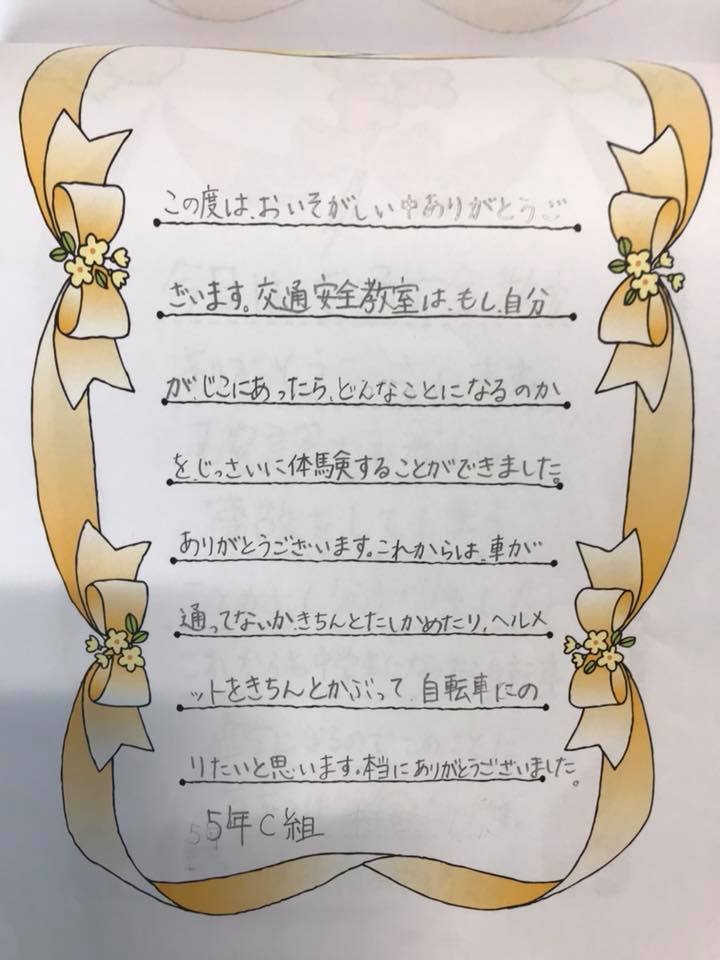 この度は、おいそがしい中ありがとうご
ざいます。交通安全教室は、もし、自分
が、じこにあったら、どんなことになるのか
を、じっさいに体験することができました。
ありがとうございます。これからは、車が
通ってないか、きちんとたしかめたり、ヘルメ
ットをきちんとかぶって、自転車にの
りたいと思います。本当にありがとうございました。
5年C組